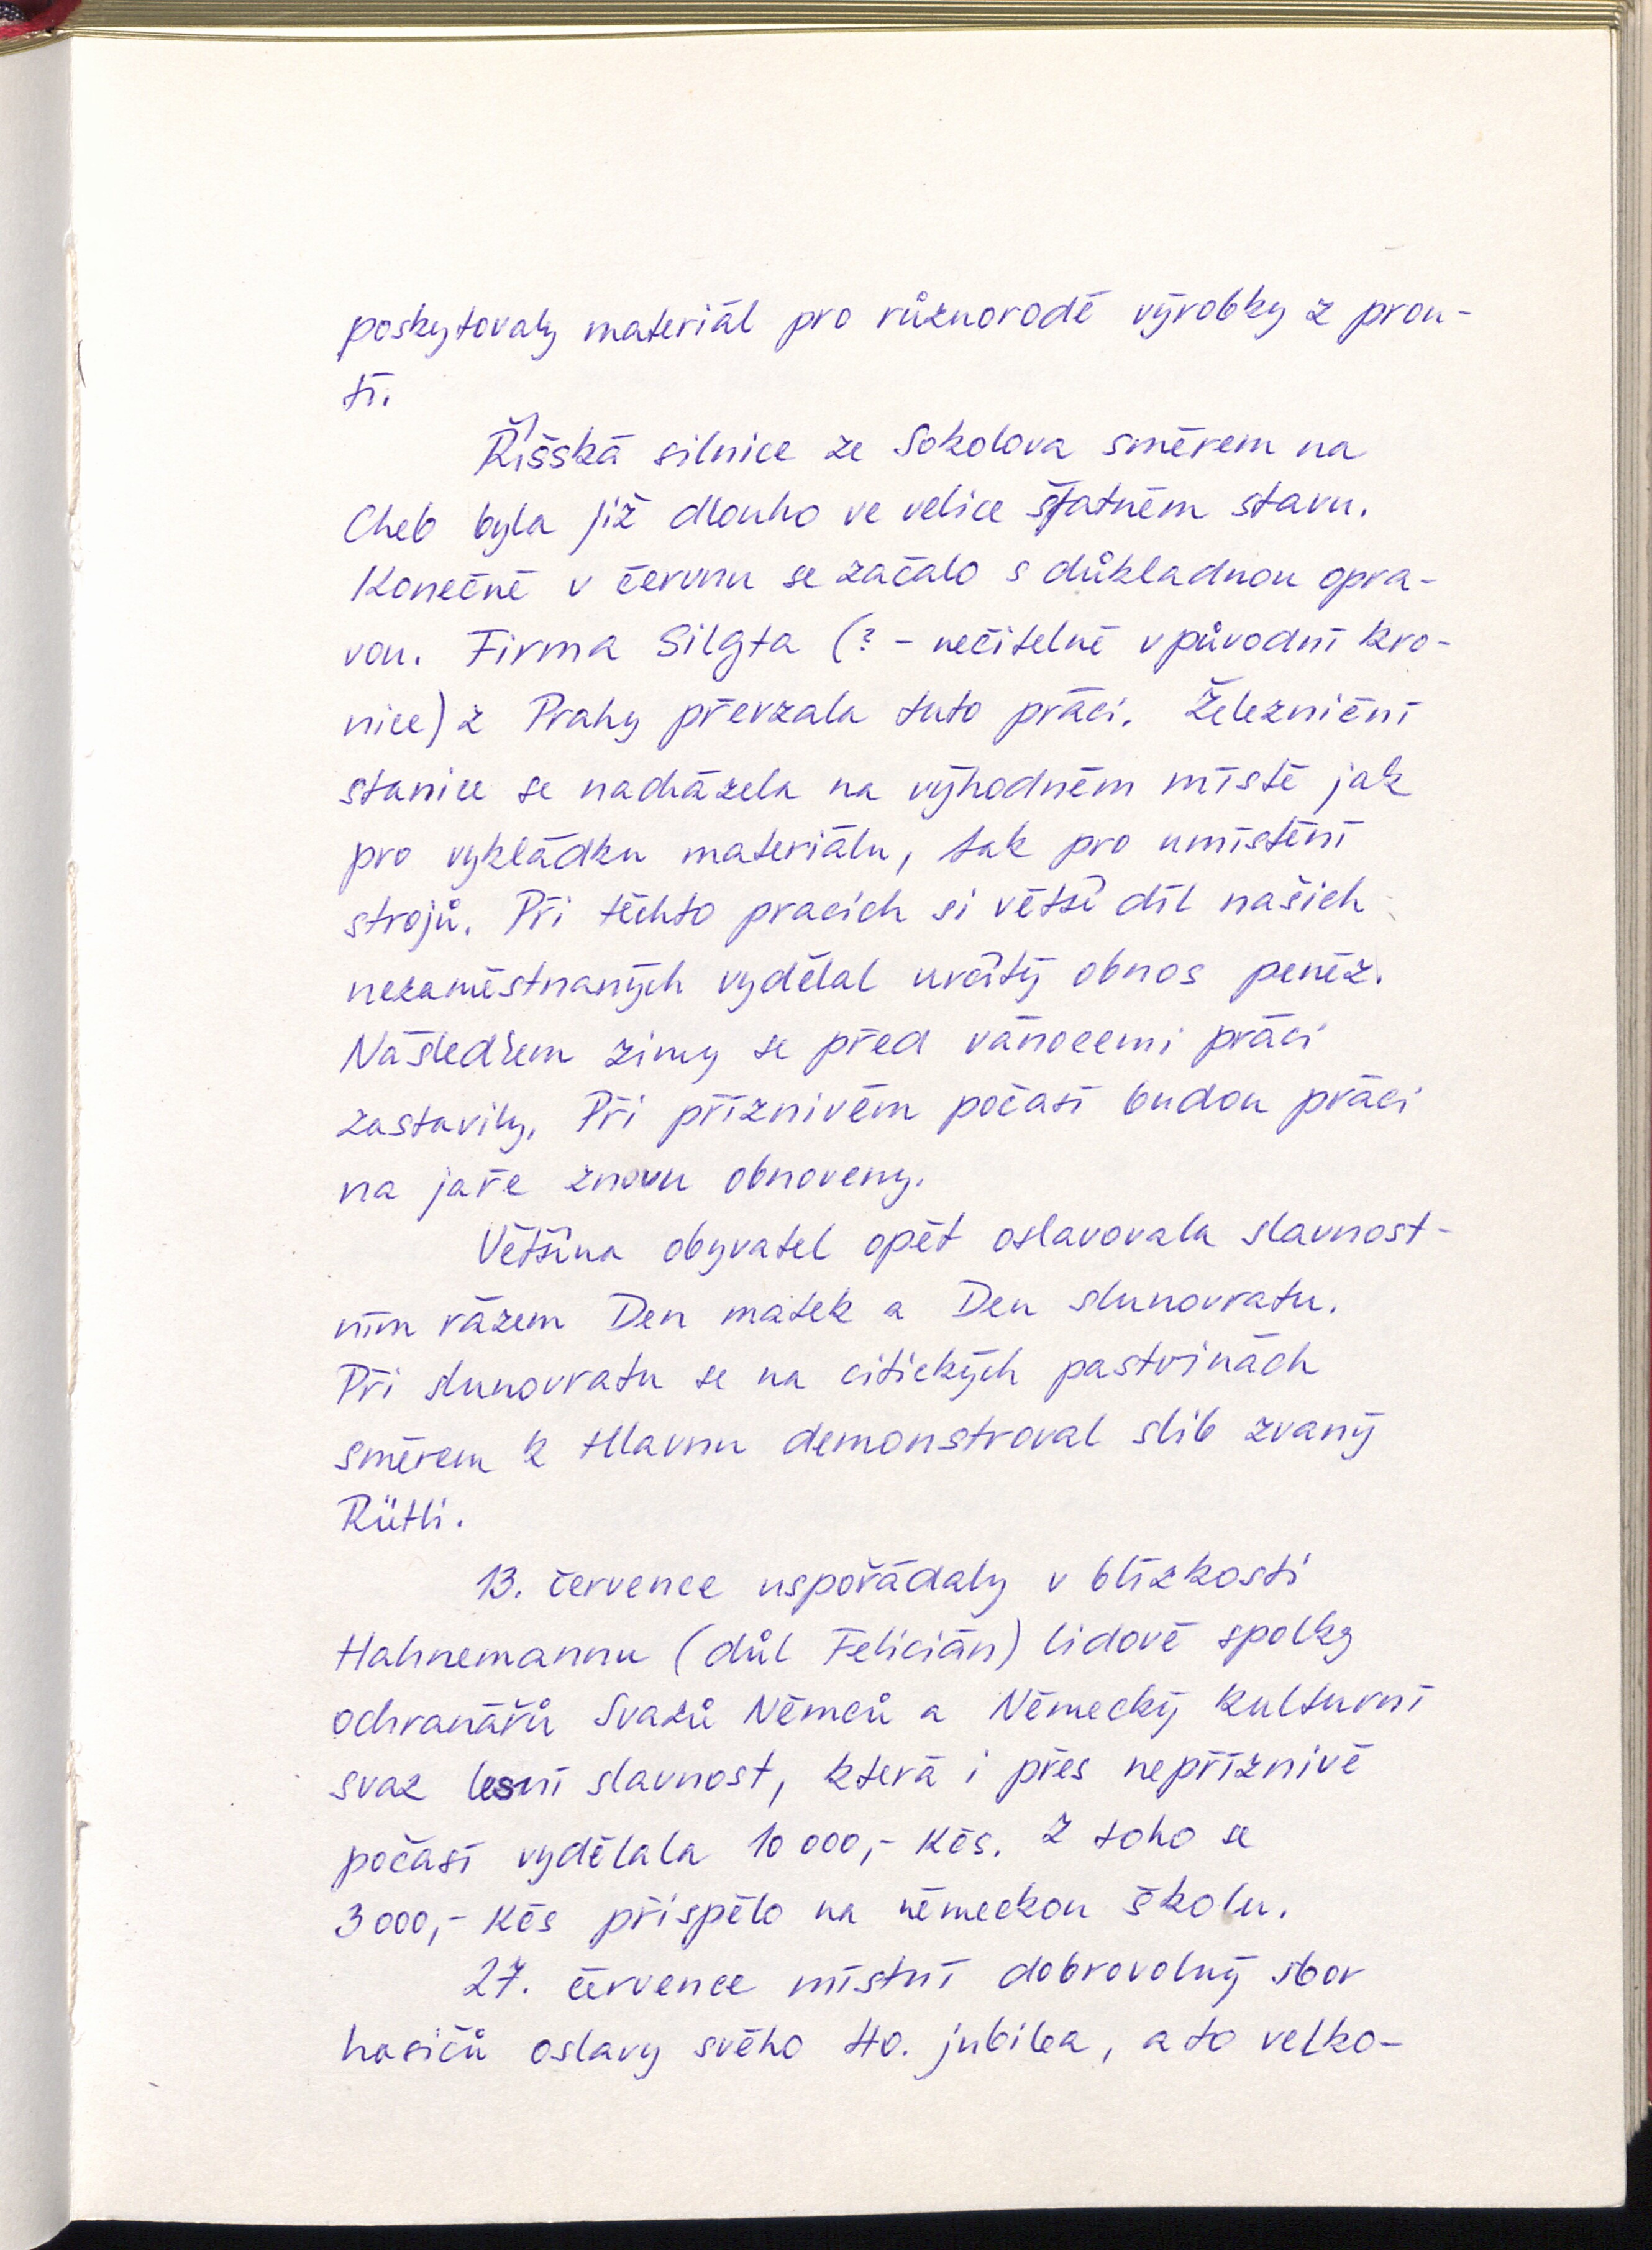 poskytovaly materiál pro různorodé výrobky z prou-
tí.
Říšská silnice ze Sokolova směrem na
Cheb byla již dlouho ve velice špatném stavu.
Konečně v červnu se začalo s důkladnou opra-
vou. Firma Silgta (? - nečitelné v původní kro-
nice) z Prahy převzala tuto práci. Železniční
stanice se nacházela na výhodném místě jak
pro vykládku materiálu, tak pro umístění
strojů. Při těchto pracích si větší díl našich
nezaměstnaných vydělal určitý obnos peněz.
Následkem zimy se před vánocemi práci
zastavily. Při příznivém počasí budou práci
na jaře znovu obnoveny.
Většina obyvatel opět oslavovala slavnost-
ním rázem Den matek a Den slunovratu.
Při slunovratu se na citických pastvinách
směrem k Hlavnu demonstroval slib zvaný
Rütli.
13. července uspořádaly v blízkosti
Hahnemannu (důl Felicián) lidové spolky
ochranářů Svazů Němců a Německý kulturní
svaz lesní slavnost, která i přes nepříznivé
počasí vydělala 10 000,- Kčs. Z toho se
3 000,- Kčs přispělo na německou školu.
27. července místní dobrovolný sbor
hasičů oslavy svého 40. jubilea, a to velko-